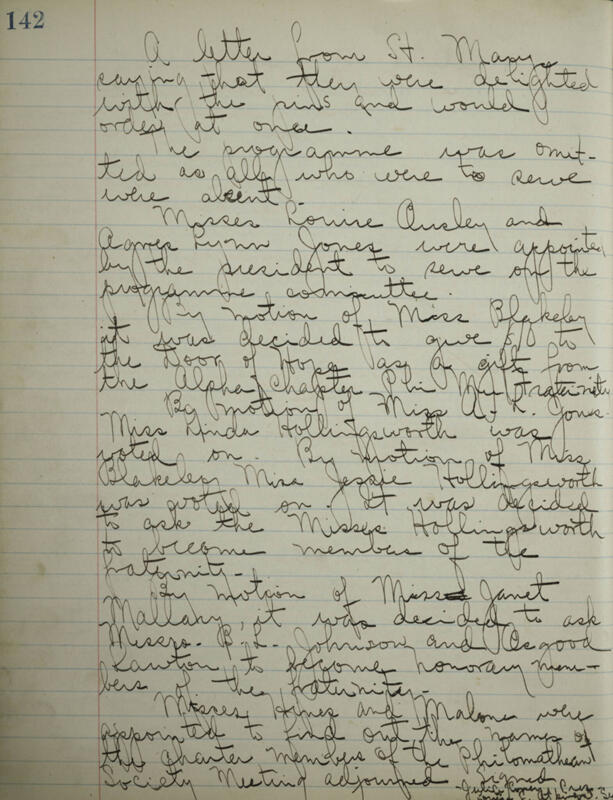 142
A letter from St. Mary's
saying that they were delighted
with the pins and would
order at once.
The programme was omit-
ted as all who were to serve
were absent.
Misses Louise Ousley and
Agnes Lynn Jones were appointed
by the president to serve on the
programme committee.
By motion of Miss Blakeley
it was decided to give to
the Door of Hope as a gift from
the Alpha Chapter Phi Mu Fraternity
By motion of Miss A. L. Jones
Miss Linda Hollingsworth was
voted on. By motion of Miss
Blakeley Miss Jessie Hollingsworth
was voted on. It was decided
to ask the Misses Hollingsworth
to become members of the
fraternity-
By motion of Miss Janet
Mallary, it was decided to ask
Messrs. B. L. Johnson and Osgood
Lawton to become honorary mem-
bers of the fraternity-
Misses Hines and Malone were
appointed to find out the names of
the charter members of the Philomathean
Society Meeting adjourned
signed